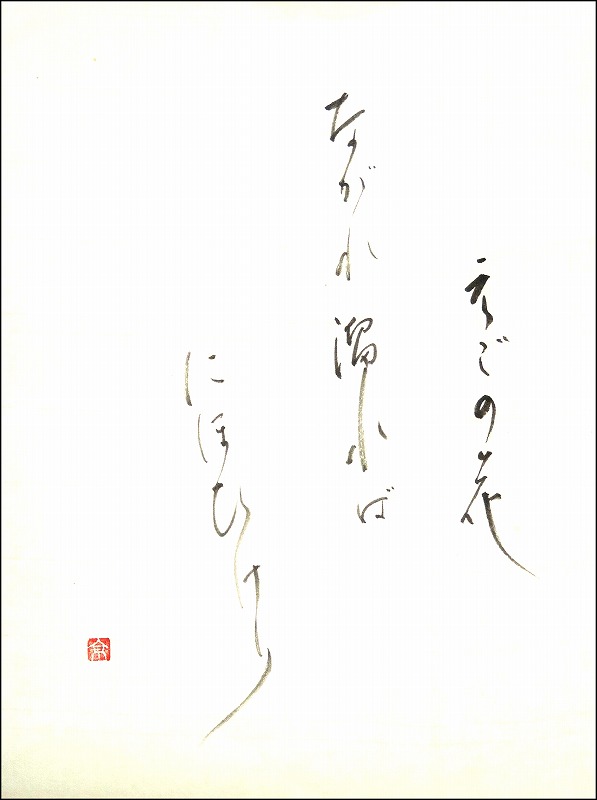 えごの花
ながれ溜れば
にほひけり